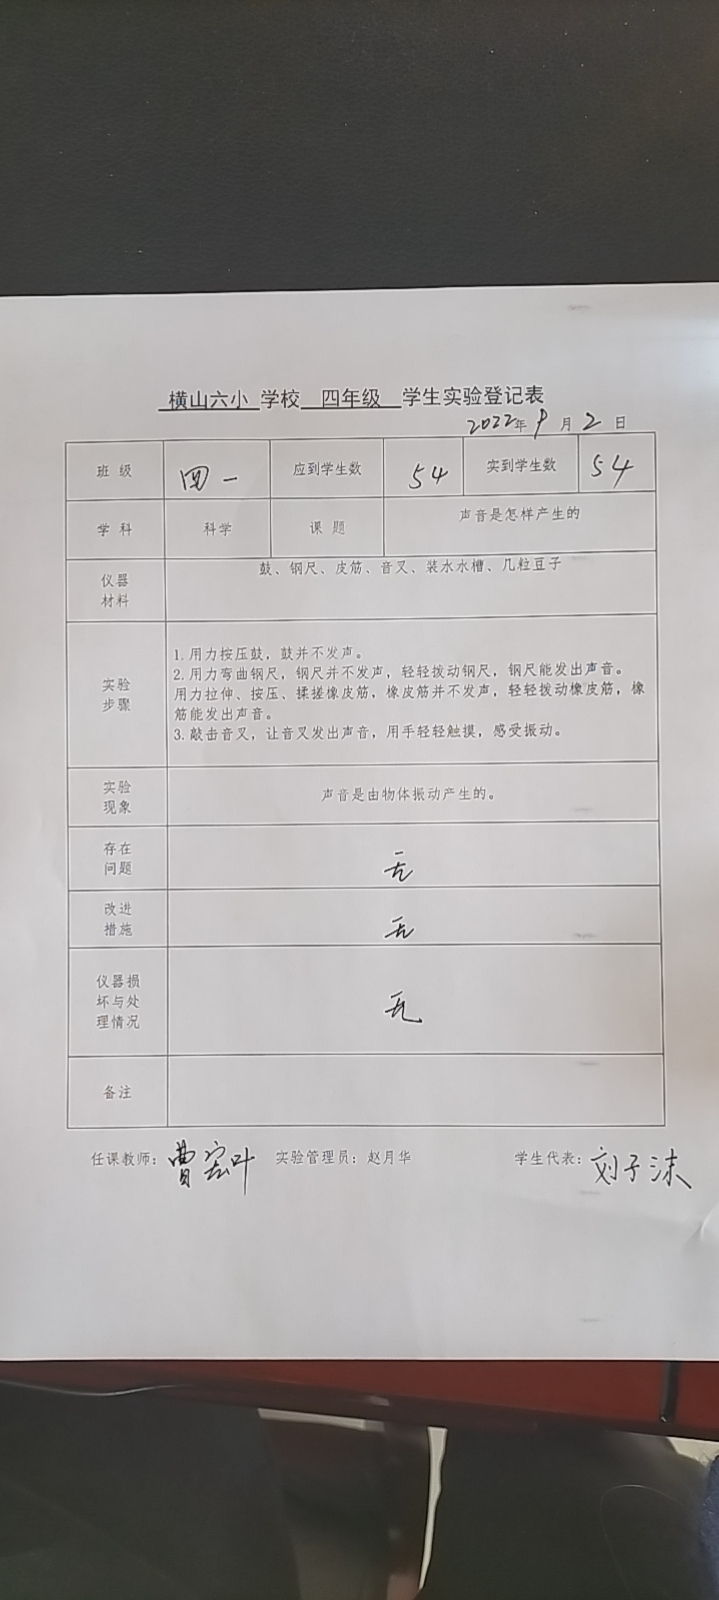 横山六小 学校 四年级 学生实验登记表
2022年9月2日
班级 四一 应到学生数 54 实到学生数 54
学科 科学 课题 声音是怎样产生的
仪器材料 鼓、钢尺、皮筋、音叉、装水水槽、几粒豆子
实验步骤
1.用力按压鼓，鼓并不发声。
2.用力弯曲钢尺，钢尺并不发声，轻轻拨动钢尺，钢尺能发出声音。
用力拉伸、按压、揉搓橡皮筋，橡皮筋并不发声，轻轻拨动橡皮筋，橡
筋能发出声音。
3.敲击音叉，让音叉发出声音，用手轻轻触摸，感受振动。
实验现象 声音是由物体振动产生的。
存在问题 无
改进措施 无
仪器损坏与处理情况 无
备注
任课教师：曹宏叶 实验管理员：赵月华 学生代表：刘子沫